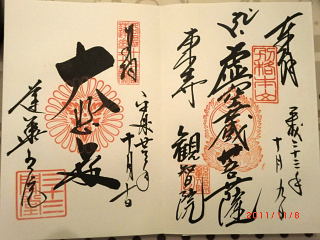 奉拝
平成二十三年
十月九日
虚空蔵菩薩
東寺
観智院
奉拝
平成廿三年
十月十日
大悲殿
蓮華王院
2011/11/8